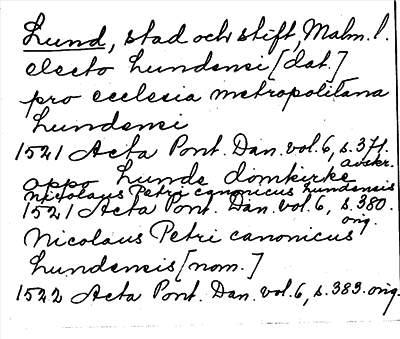 Lund, stad och stift, Malm. l.
electo Lundensi [dat.]
pro ecclesia metropolitana
Lundensi
1521 Acta Pont. Dan. vol. 6, s. 377.
avskr.
oppo Lunde domkirke
Nicolaus Petri canonicus Lundensis
1521 Acta Pont. Dan. vol. 6, s. 380.
orig.
Nicolaus Petri canonicus
Lundensis [nom.]
1522 Acta Pont. Dan. vol. 6, s. 383. orig.